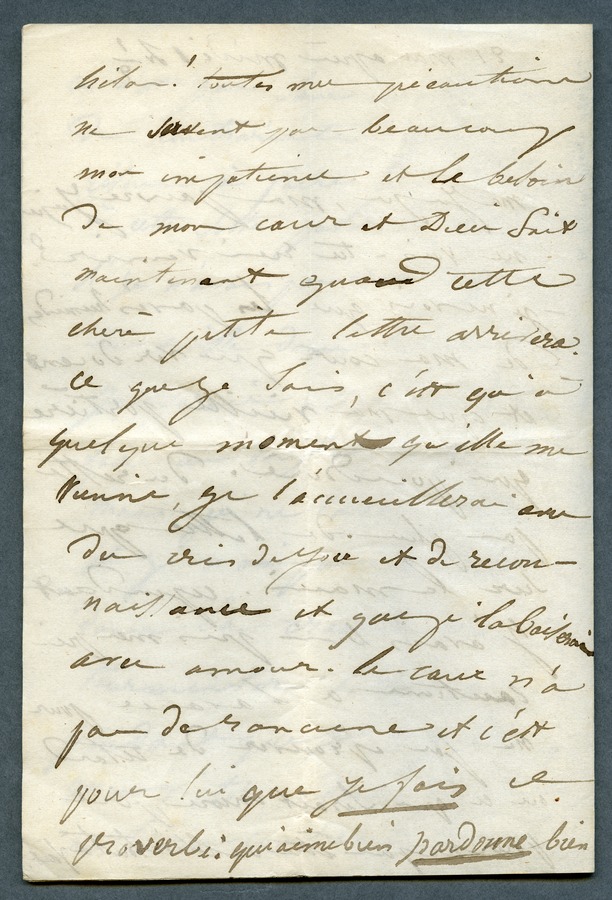 hélas! toutes mes précautions
ne servent pas beaucoup
mon impatience et le besoin
de mon cœur et Dieu sait
maintenant quand cette
chère petite lettre arrivera.
ce que je sais, c'est qu'à
quelque moment qu'elle me
vienne, je l'accueillerai avec
des cris de joie et de recon-
naissance et que je la baiserai
avec amour. le cœur n'a
pas de rancune et c'est
pour lui que je fais ce
proverbe: qui aime bien pardonne bien